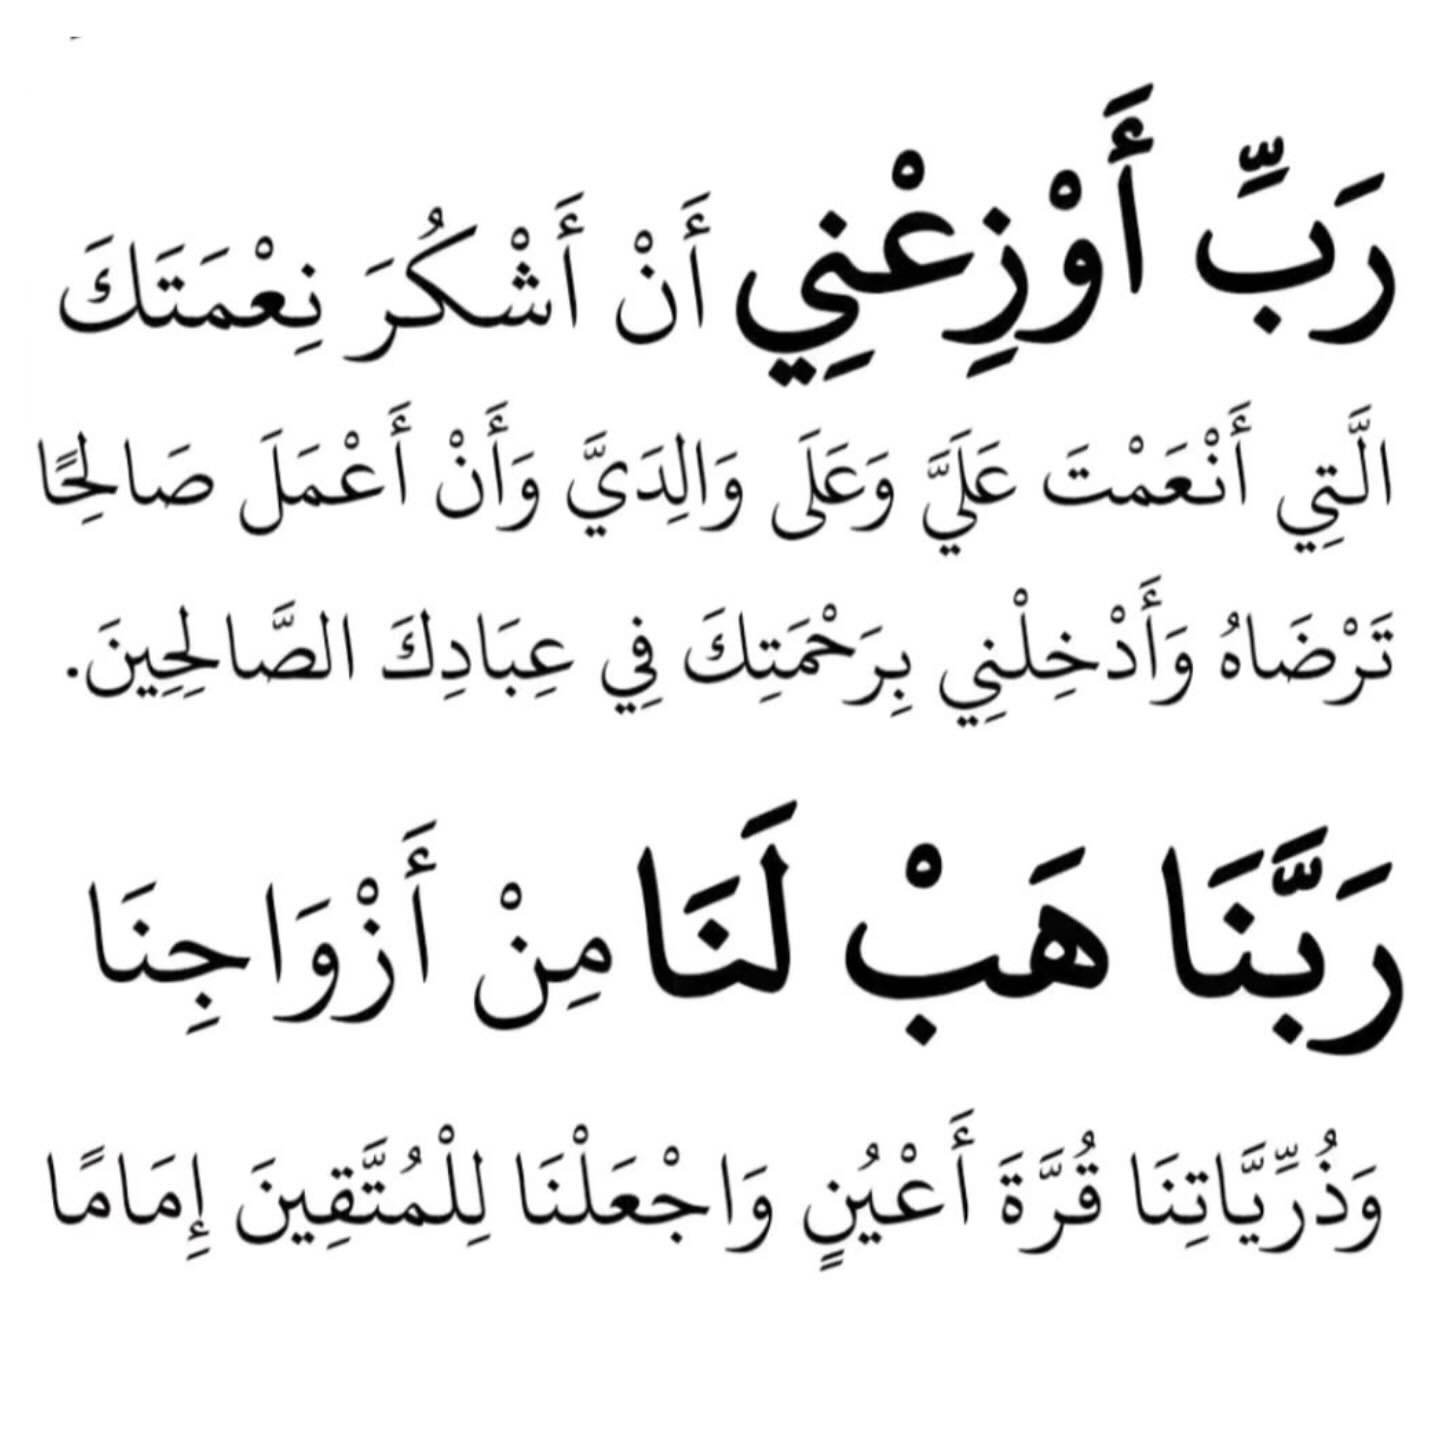 رَبِّ أَوْزِعْنِي أَنْ أَشْكُرَ نِعْمَتَكَ
الَّتِي أَنْعَمْتَ عَلَيَّ وَعَلَى وَالِدَيَّ وَأَنْ أَعْمَلَ صَالِحًا
تَرْضَاهُ وَأَدْخِلْنِي بِرَحْمَتِكَ فِي عِبَادِكَ الصَّالِحِينَ.
رَبَّنَا هَبْ لَنَا مِنْ أَزْوَاجِنَا
وَذُرِّيَّاتِنَا قُرَّةَ أَعْيُنٍ وَاجْعَلْنَا لِلْمُتَّقِينَ إِمَامًا